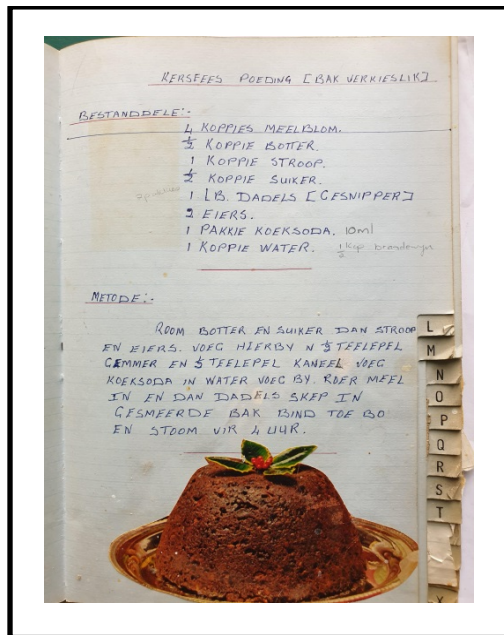 KERSFEES POEDING [BAK VERKIESLIK]
BESTANDDELE:-
4 KOPPIES MEELBLOM.
½ KOPPIE BOTTER.
1 KOPPIE STROOP.
½ KOPPIE SUIKER.
1 LB. DADELS [GESNIPPER]
2 EIERS.
1 PAKKIE KOEKSODA. 10ml
1 KOPPIE WATER. ½ kop brandewyn
METODE:-
ROOM BOTTER EN SUIKER DAN STROOP
EN EIERS. VOEG HIERBY N ½ TEELEPEL
GEMMER EN ½ TEELEPEL KANEEL VOEG
KOEKSODA IN WATER VOEG BY. ROER MEEL
IN EN DAN DADELS SKEP IN
GESMEERDE BAK BIND TOE BO
EN STOOM VIR 4 UUR.
L
M
N
O
P
Q
R
S
T
X